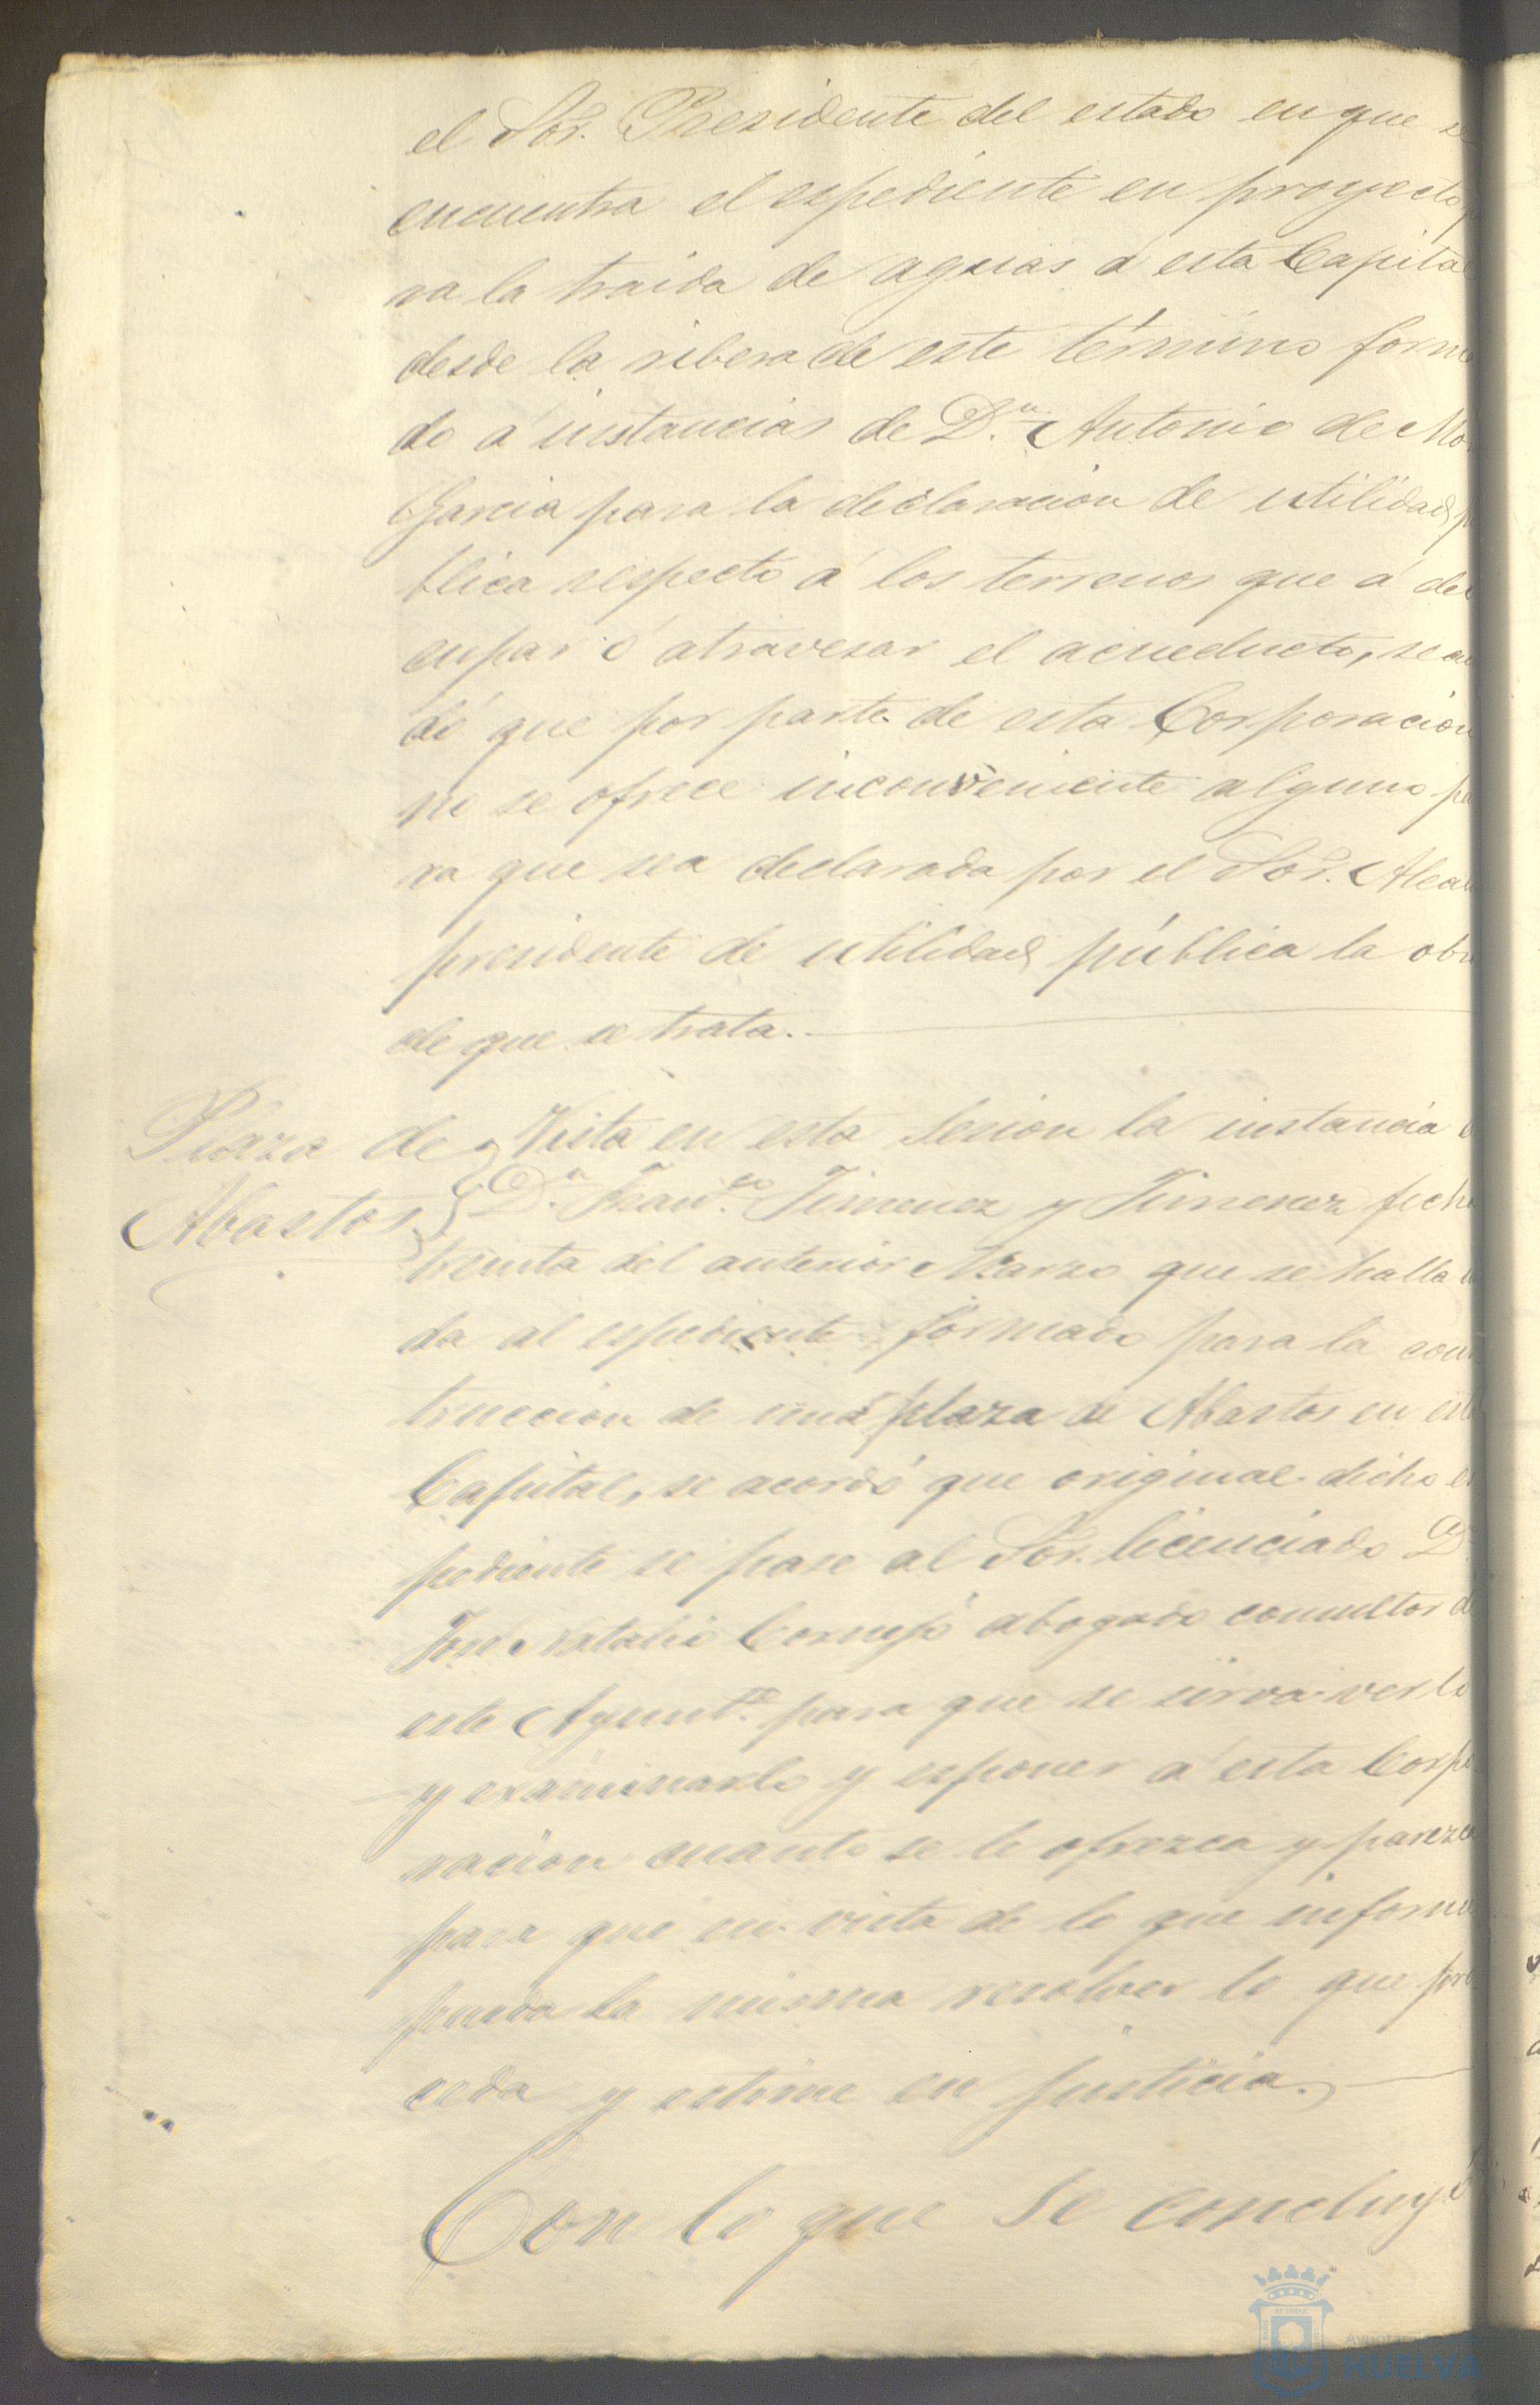 el Sor. Presidente del estado en que se
encuentra el espediente en proyecto
ra la traida de aguas á esta Capital
desde la ribera de este término forma
do á instancias de Dn. Antonio de Mo
Garcia para la declaracion de utilidad pu
blica respecto á los terrenos que á de
cupar ó atravesar el acueducto, se acor
dó que por parte de esta Corporacion
no se ofrece inconveniente alguno pa
ra que sea declarada por el Sor. Alcal
presidente de utilidad pública la obra
de que se trata.
Plaza de
Abastos
Vista en esta Sesion la instancia
Dn. Franco. Jimenez y Jimenez fecha
treinta del anterior Marzo que se halla
da al espediente formado para la cons
truccion de una plaza de Abastos en esta
Capital, se acordó que original dicho es
pediente se pase al Sor. licenciado D.
José Natalio Cornejo abogado consultor de
este Ayuntto. para que se sirva verlo
y examinarlo y esponer á esta Corpo
racion cuanto se le ofrezca y parezca
para que en vista de lo que informe
pueda la misma resolver lo que pro
ceda y estime en justicia.
Con lo que se concluyó
HUELVA